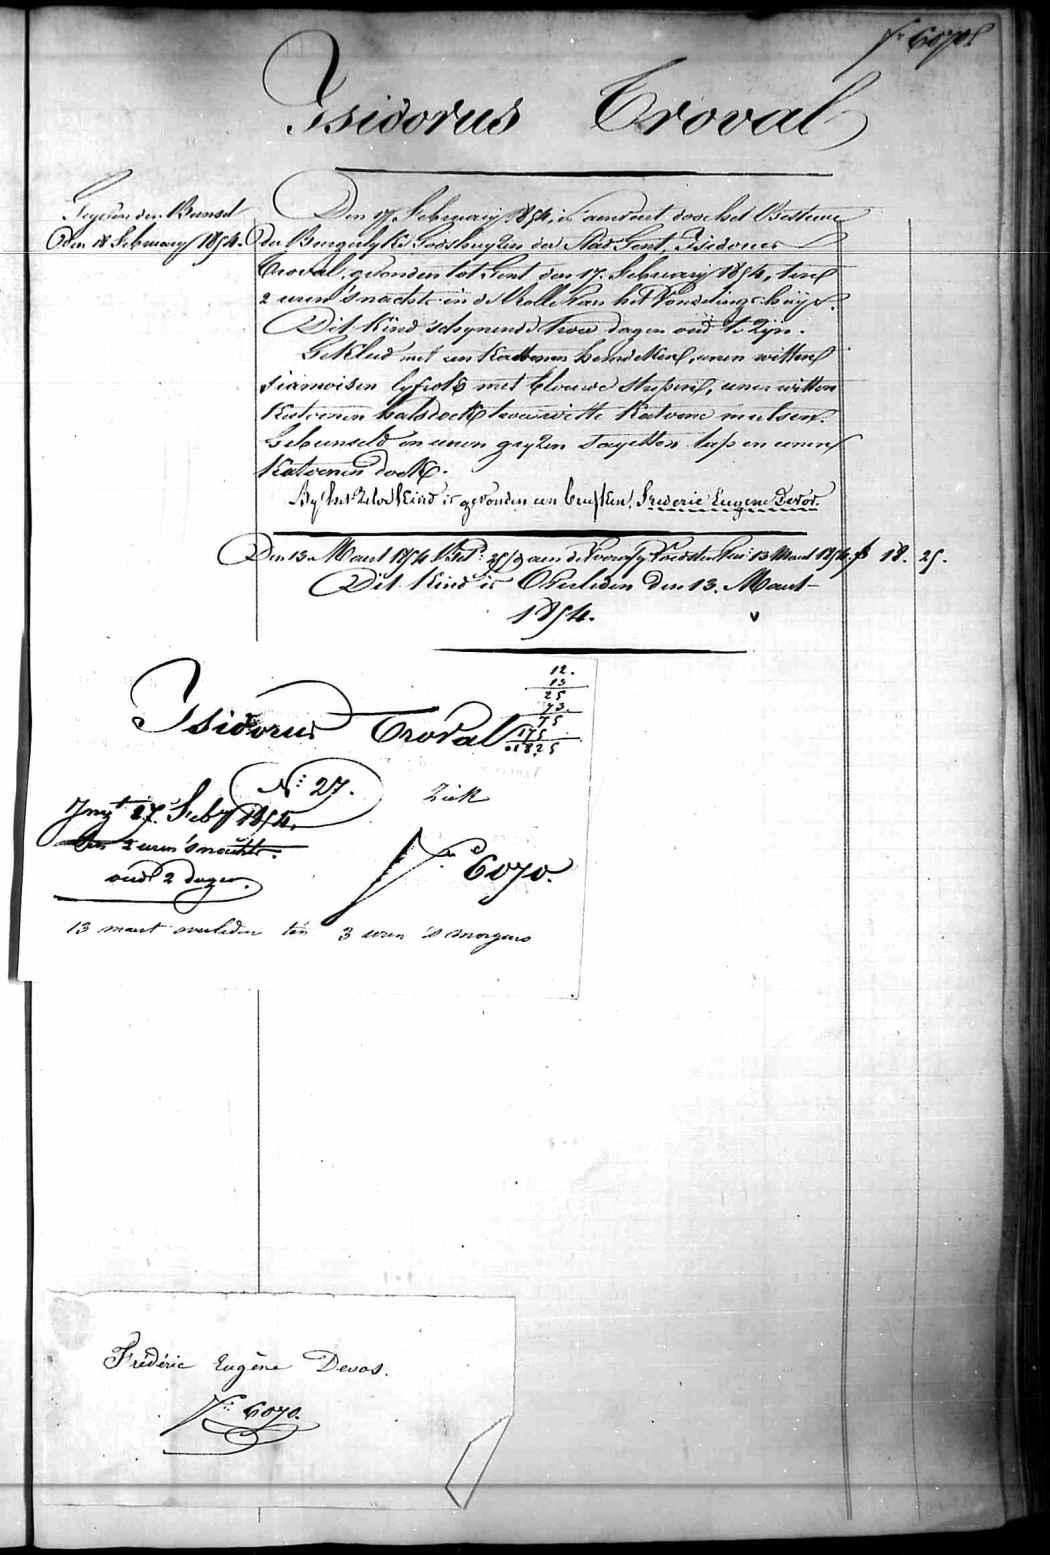 Fr. 6070
Isidorus Croval
Den 17 February 1854, is aenveerd door het Bestuur
den 18 February 1854.
der Burgerlyke Godshuyzen der Stad Gent, Isidorus
Croval, gevonden tot Gent den 17. February 1854, ten
2 uren 's nachts in de Rolle van het Vondelings-huys.
Dit kind schynende twee dagen oud te zyn.
Gekleed met een kattoenen hemdeken, eenen witten
siamoisen lyfrok met blouwe strepen, eenen witten
katoenen halsdoek twee witte katoene mutsen.
Gebunseld in eenen gryzen sayetten lap en eenen
katoenen doek.
By het zelve kind is gevonden een briefken, Frederic Eugene Devos.
Den 13 Maert 1854 aen de 13 Maert 1854 fr 18. 25.
Dit Kind is Overleden den 13. Maert
1854.
12.
13
25
73
75
175
1825
Isidorus Croval
N: 27.
Ziek
17. Feby 1854,
ten 2 uren 's nachts.
oud 2 dagen.
Fr. 6070.
13 maert overleden ten 3 uren 's morgens
Frédéric Eugène Devos.
Fr. 6070.